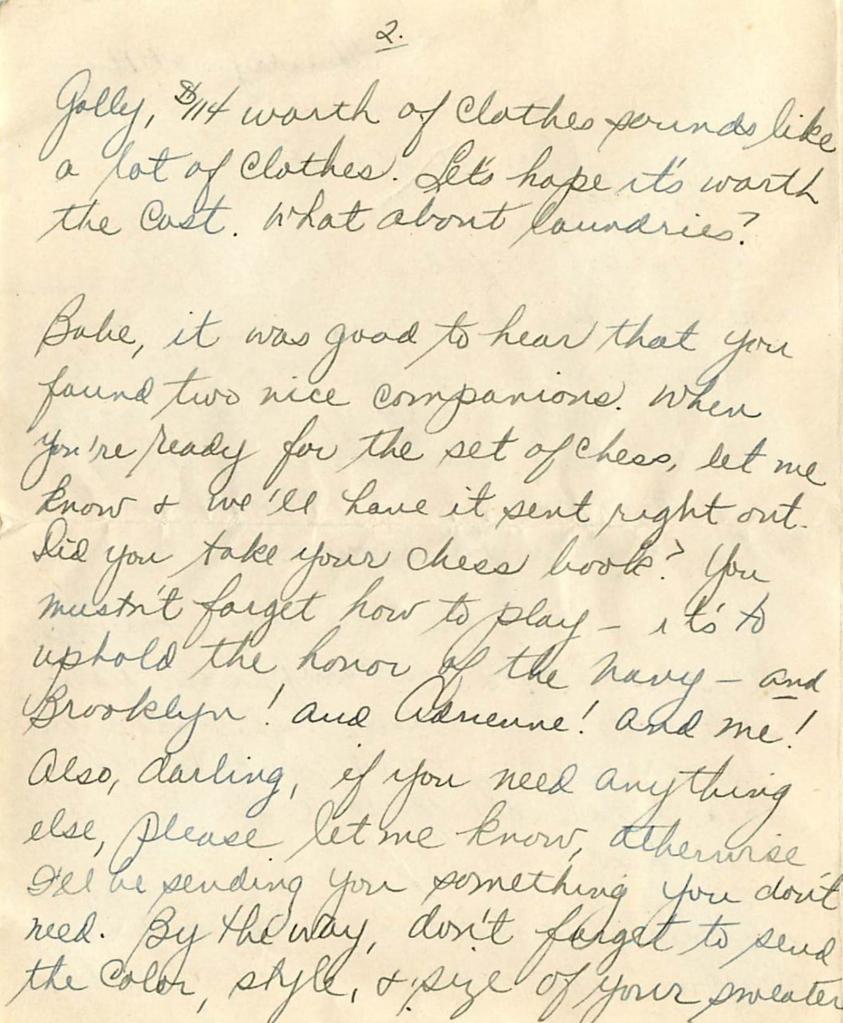 2.
Golly, $114 worth of clothes sounds like
a lot of clothes. Let's hope it's worth
the cost. What about laundries?
Babe, it was good to hear that you
found two nice companions. When
you're ready for the set of chess, let me
know & we'll have it sent right out.
Did you take your chess book? You
mustn't forget how to play - it's to
uphold the honor of the Navy - and
Brooklyn! and Adrienne! And me!
Also, darling, if you need anything
else, please let me know, otherwise
I'll be sending you something you don't
need. By the way, don't forget to send
the color, style, & size of your sweater